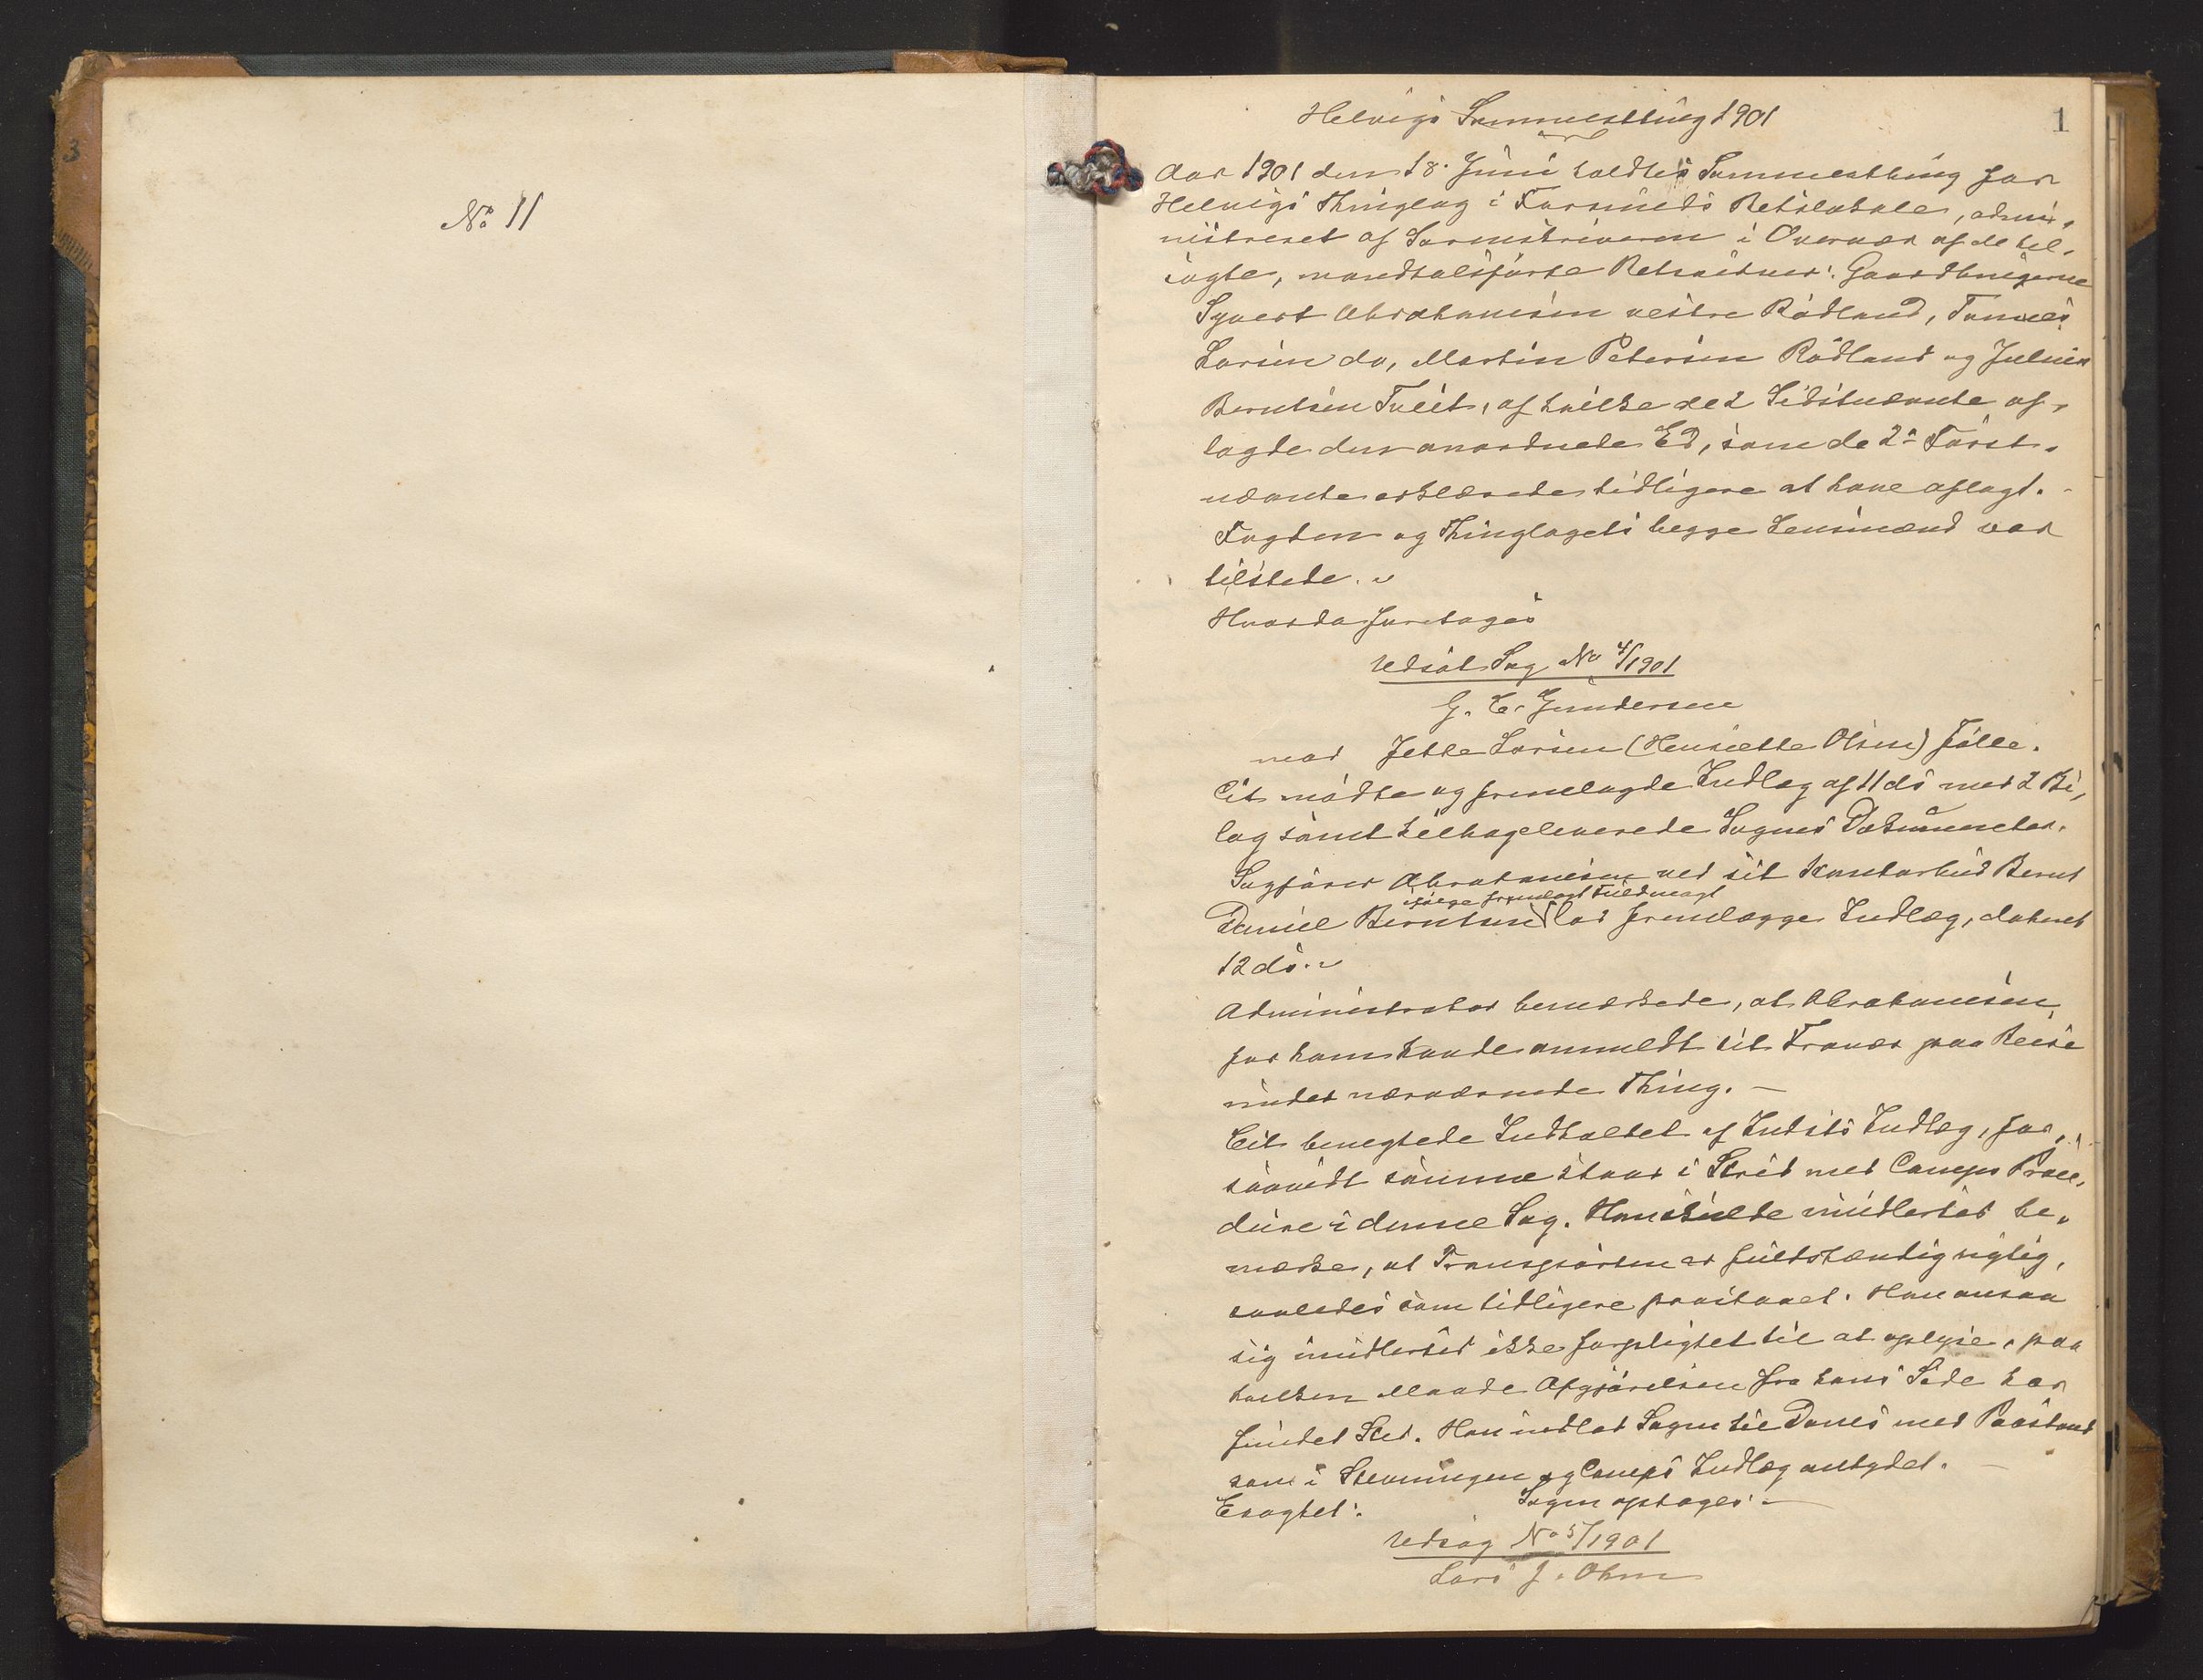 3
No 11
1
Helvigs Sommerthing 1901
Aar 1901 den 18. Juni holdtes Sommerthing for
Helvigs Thinglag i Farsunds Retslokale, admi-
nistreret af Sorenskriveren i Overvær af de til-
sagte, mandtalsførte Retsvidner: Gaardbrugerne
Syvert Abrahamsen vestre Rødland, Tønnes
Larsen do, Martin Petersen Rødland og Julius
Berntsen Tveit, af hvilke de 2 Sidstnævnte af-
lagde den anordnede Ed, som de 2 Først-
nævnte erklærede tidligere at have aflagt. -
Fogden og Thinglagets begge Lensmænd var
tilstede.
Hvorda foretoges
Uds Sag No 4/1901
G. E. Gundersen
mod Jette Larsen (Henriette Olsen) Fölle.
Cit mødte og fremlagde Indlæg af 11 ds med 2 Bi-
lag samt tilbageleverede Sagens Dokumenter.
Sagfører Abrahamsen ved sit Kontorbud Bernt
ifølge fremlagt Fuldmagt
Daniel Berntsen lod fremlægge Indlæg, dateret
12 ds.
Administrator bemærkede, at Abrahamsen
for ham havde anmeldt sit Fravær paa Reise
under nærværende Thing. —
Cit benegtede Indholdet af Indsts Indlæg, for-
saavidt samme staar i Strid med Camps Proce-
dure i denne Sag. Han skulde imidlertid be-
mærke, at Transporten er fuldstændig rigtig,
saaledes som tidligere paastaaet. Han ansaa
sig imidlertid ikke forpligtet til at oplyse, paa
hvilken Maade Afgjørelsen fra hans Side har
fundet Sted. Han indlod Sagen til Doms med Paastand
som i Stevningen og Camps Indlæg antydet. —
Eragtet: Sagen optages. —
Udsag No 5/1901
Lars J. Olsen